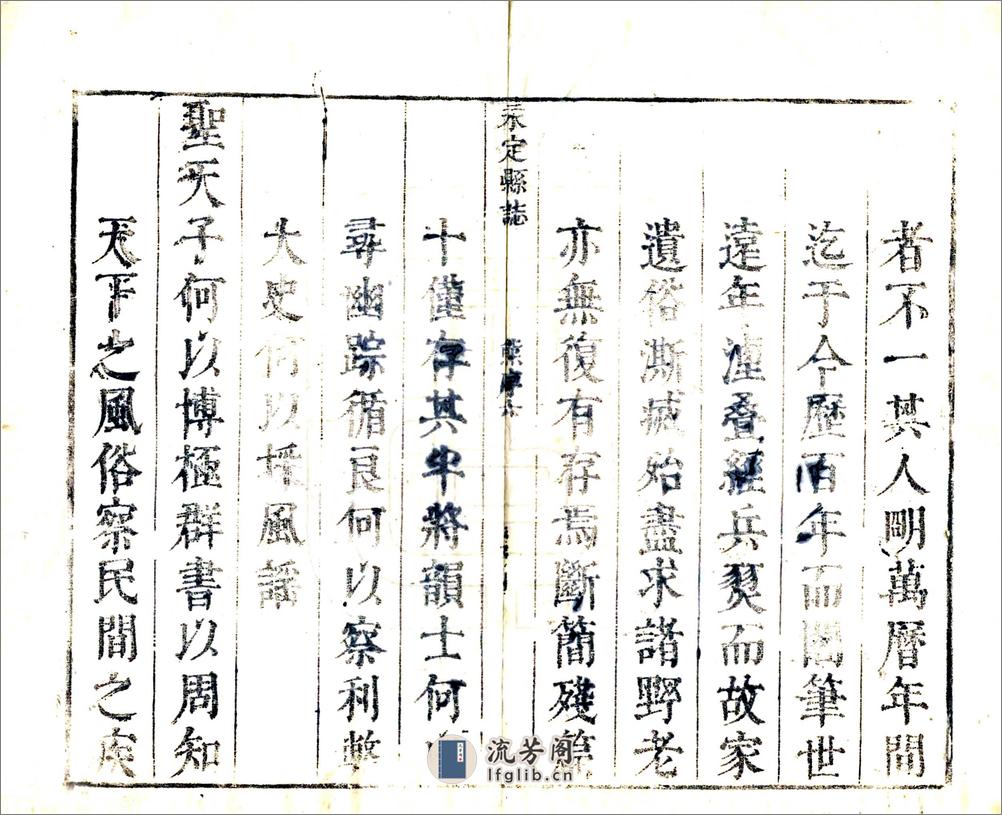 者不一其人明萬曆年間
迄于今歷百年而閣筆世
遠年湮叠經兵燹而故家
遺俗澌滅始盡求諸野老
亦無復有存焉斷簡殘篇
永定縣誌
熊序六
十僅存其半將韻士何
尋幽踪循良何以察利弊
大史何以採風謡
聖天子何以博極群書以周知
天下之風俗察民間之疾
流芳阁
lfglib.cn